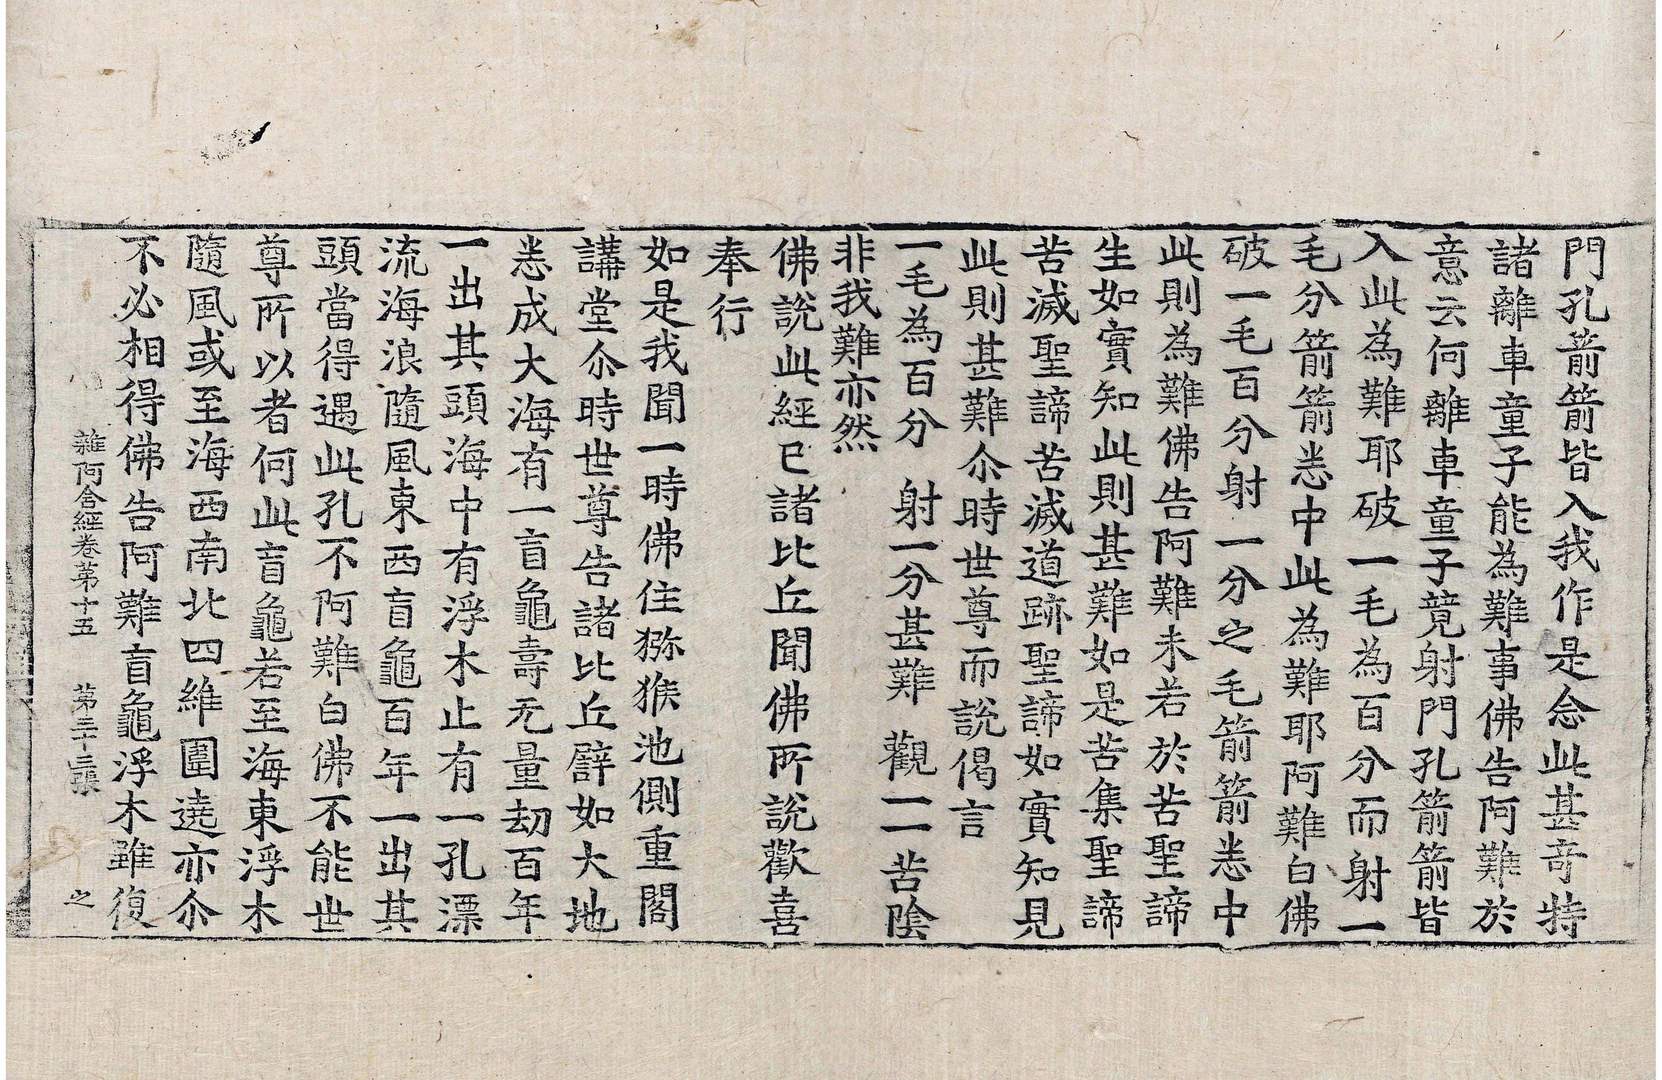 門孔箭箭皆入我作是念此甚奇特
諸離車童子能為難事佛告阿難於
意云何離車童子竟射門孔箭箭皆
入此為難耶破一毛為百分而射一
毛分箭箭悉中此為難耶阿難白佛
破一毛百分射一分之毛箭箭悉中
此則為難佛告阿難未若於苦聖諦
生如實知此則甚難如是苦集聖諦
苦滅聖諦苦滅道跡聖諦如實知見
此則甚難尒時世尊而說偈言
一毛為百分　射一分甚難　觀一一苦陰
非我難亦然
佛說此經已諸比丘聞佛所說歡喜
奉行
如是我聞一時佛住獼猴池側重閣
講堂尒時世尊告諸比丘譬如大地
悉成大海有一盲龜壽无量劫百年
一出其頭海中有浮木止有一孔漂
流海浪隨風東西盲龜百年一出其
頭當得遇此孔不阿難白佛不能世
尊所以者何此盲龜若至海東浮木
隨風或至海西南北四維圍遶亦尒
不必相得佛告阿難盲龜浮木雖復
雜阿含經卷第十五　第二十三張　之